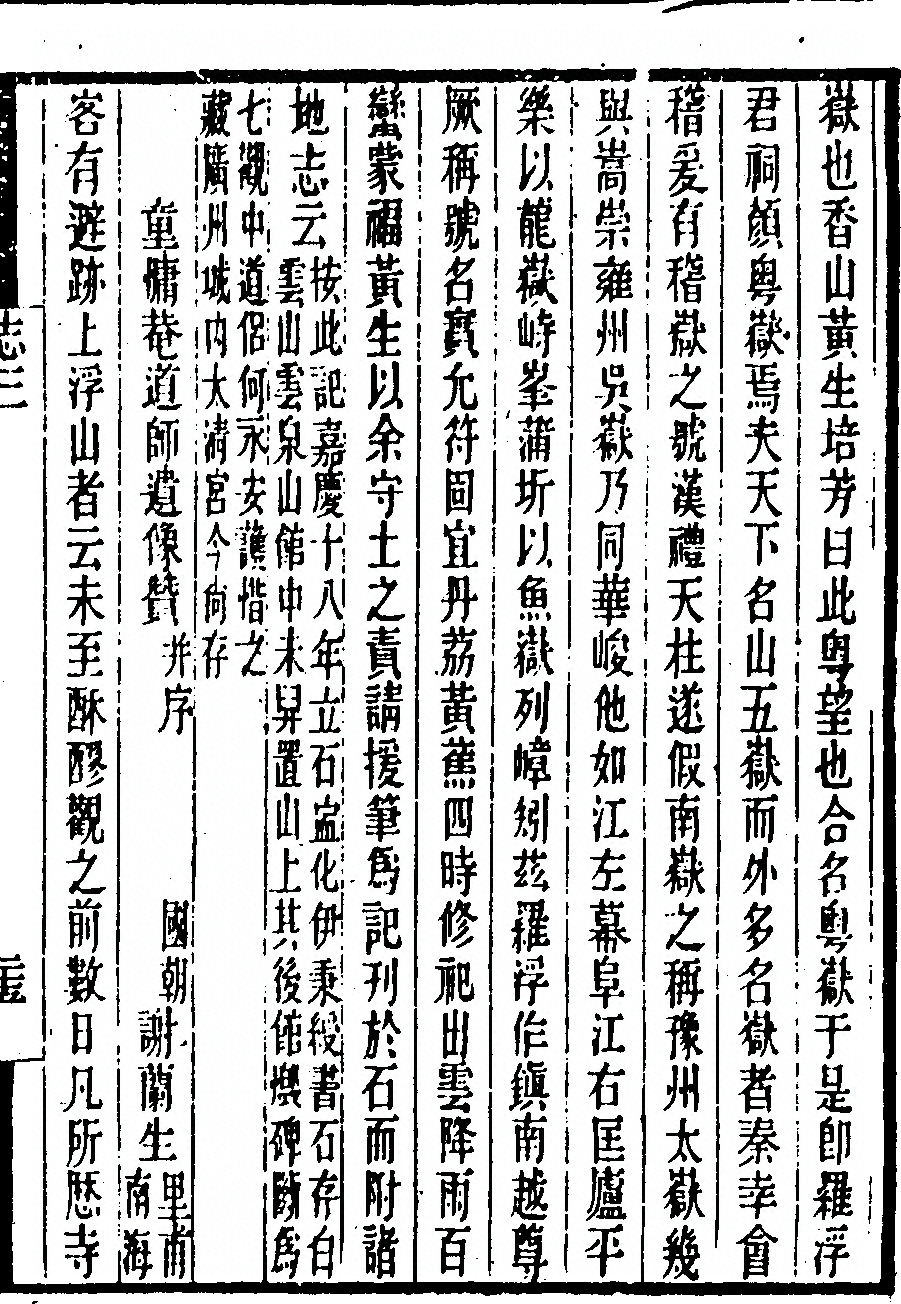 嶽也香山黃生培芳曰此粵望也合名粵嶽于是卽羅浮
君祠顏粵嶽焉夫天下名山五嶽而外多名嶽者秦幸會
稽爰有稽嶽之號漢禮天柱遂假南嶽之稱豫州太嶽幾
與嵩崇雍州吳嶽乃同華峻他如江左幕阜江右匡廬平
樂以龍嶽峙峯蒲圻以魚嶽列嶂矧茲羅浮作鎮南越尊
厥稱號名實允符固宜丹荔黃蕉四時修祀出雲降雨百
蠻蒙福黃生以余守土之責請援筆爲記刊於石而附諸
地志云
按此記嘉慶十八年立石寍化伊秉綬書石存白
雲山雲泉山館中未舁置山上其後館燬碑斷爲
七觀中道侶何永安護惜之
藏廣州城內大淸宮今尙存
童慵菴道師遺像贊
并序
國朝謝蘭生
里甫
南海
客有避跡上浮山者云未至酥醪觀之前數日凡所歷寺
志三